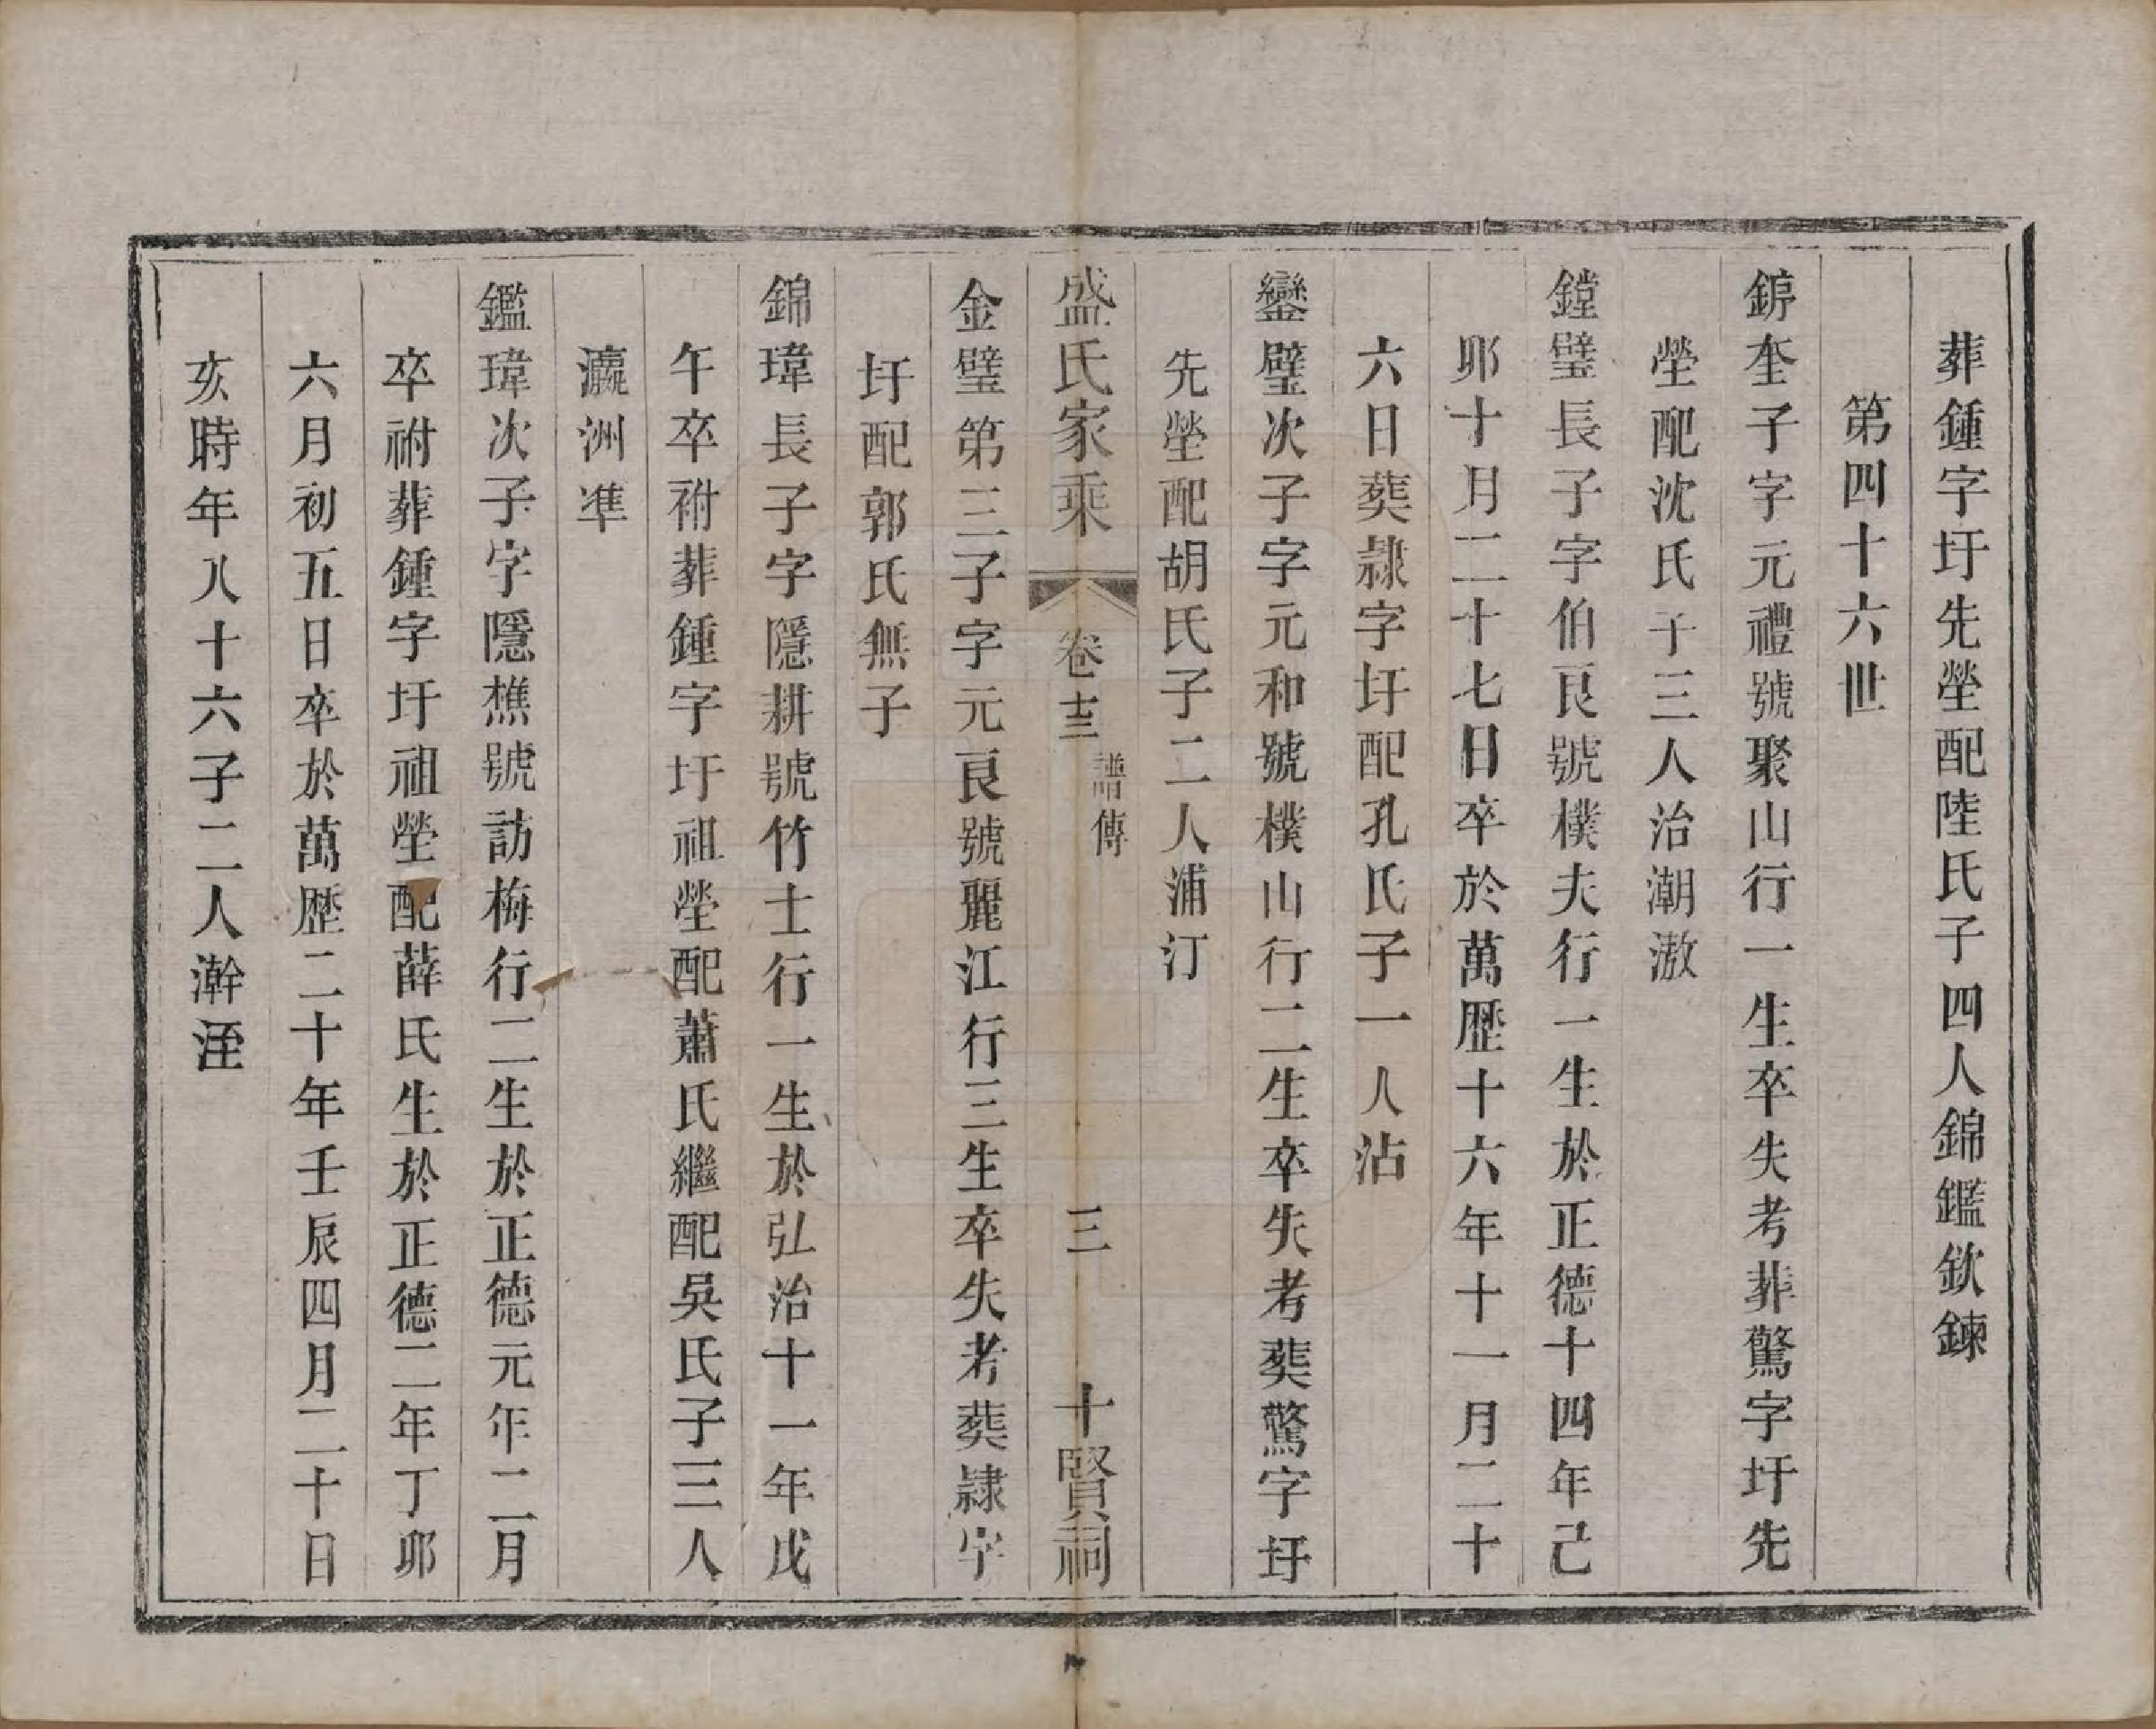 葬鍾字圩先塋配陸氏子四人錦鑑欽鍊
第四十六世
錥奎子字元禮號聚山行一生卒失考葬驚字圩先
塋配沈氏子三人治潮激
鏜璧長子字伯良號樸夫行一生於正德十四年己
卯十月二十七日卒於萬歷十六年十一月二十
六日葬隸字圩配孔氏子一人沾
鑾璧次子字元和號樸山行二生卒失考葬驚字圩
先塋配胡氏子二人浦汀
盛氏家乘 卷十三 譜傳 三 十賢祠
金璧第三子字元良號麗江行三生卒失考葬隸字
圩配郭氏無子
錦瑋長子字隱耕號竹士行一生於弘治十一年戊
午卒祔葬鍾字圩祖塋配蕭氏繼配吳氏子三人
瀛洲準
鑑瑋次子字隱樵號訪梅行二生於正德元年二月
卒祔葬鍾字圩祖塋配薛氏生於正德二年丁卯
六月初五日卒於萬歷二十年壬辰四月二十日
亥時年八十六子二人澣洷